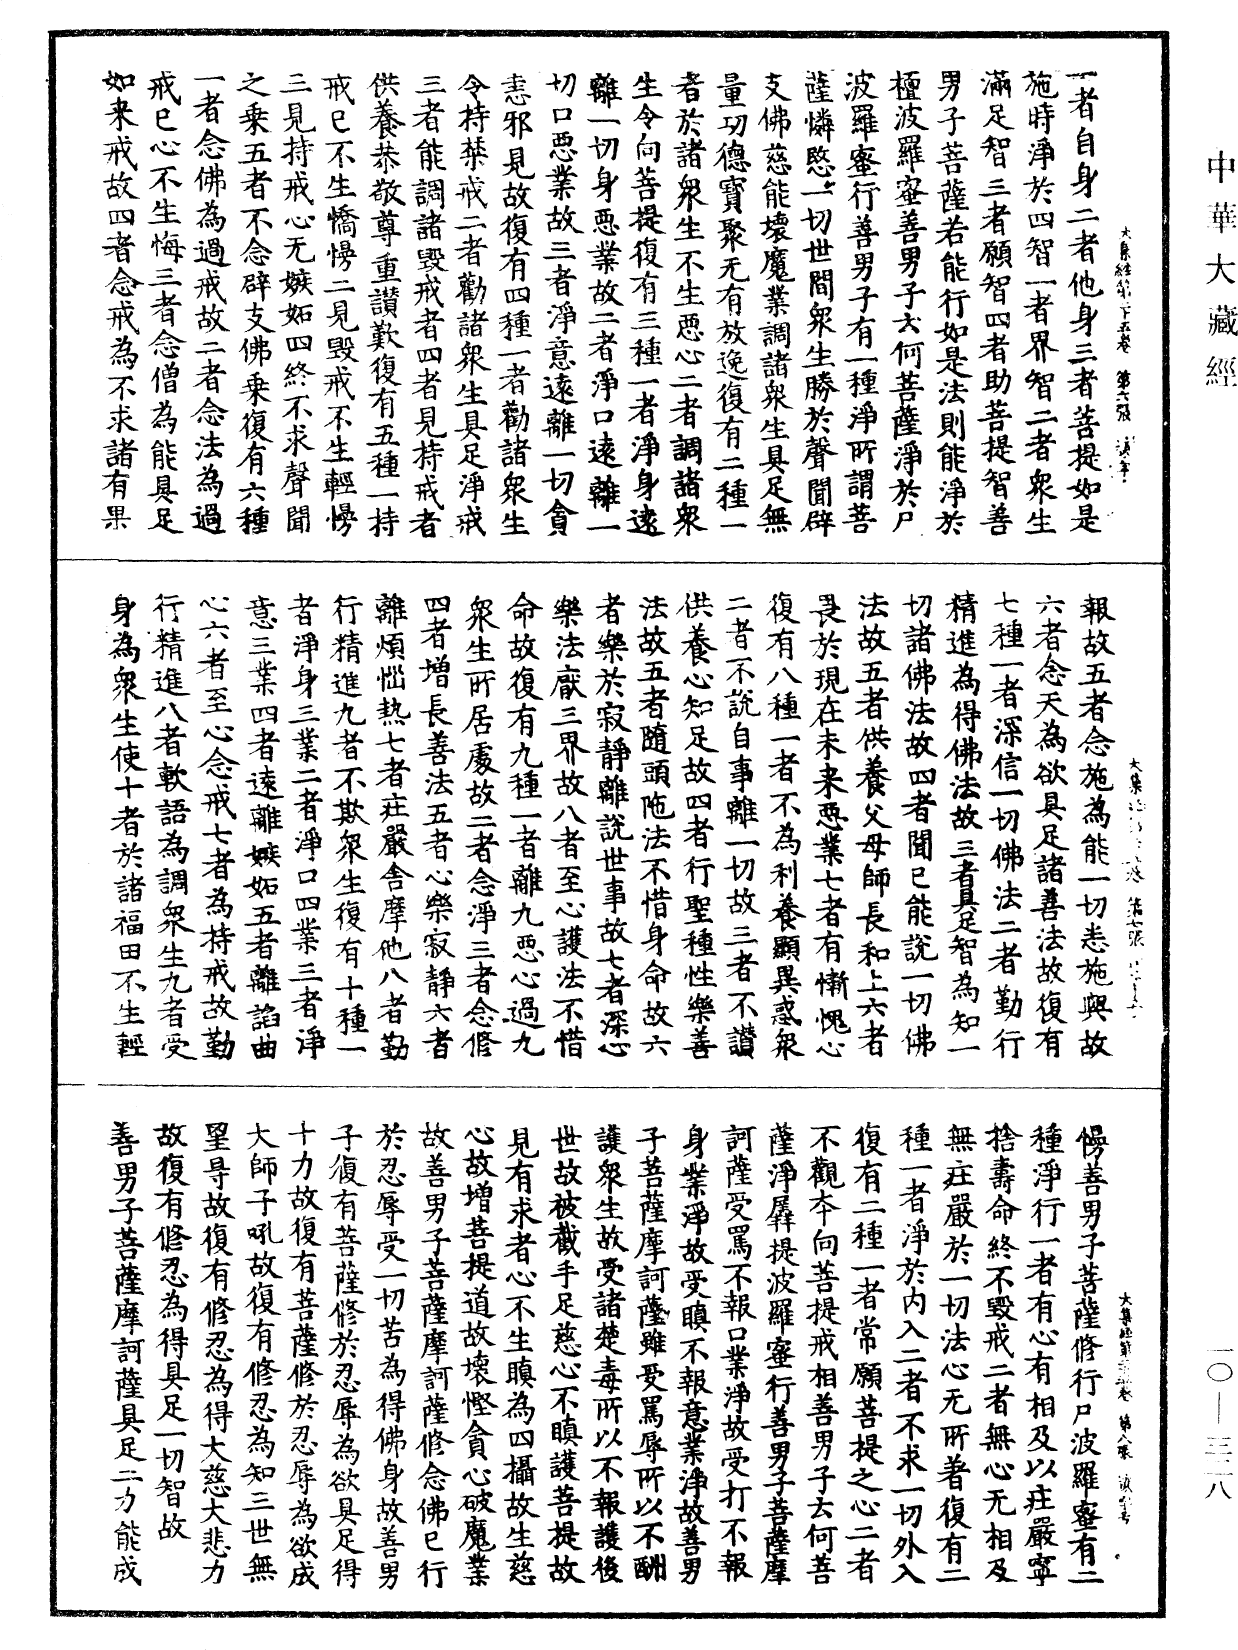 中華大藏經
一者自身二者他身三者菩提如是
施時淨於四智一者界智二者眾生
滿足智三者願智四者助菩提智善
男子菩薩若能行如是法則能淨於
檀波羅蜜善男子云何菩薩淨於尸
波羅蜜行善男子有一種淨所謂菩
薩憐愍一切世間眾生勝於聲聞辟
支佛慈能壞魔業調諸眾生具足無
量功德寶聚无有放逸復有二種一
者於諸眾生不生惡心二者調諸眾
生令向菩提復有三種一者淨身遠
離一切身惡業故二者淨口遠離一
切口惡業故三者淨意遠離一切貪
恚邪見故復有四種一者勸諸眾生
令持禁戒二者勸諸眾生具足淨戒
三者能調諸毀戒者四者見持戒者
供養恭敬尊重讚歎復有五種一持
戒已不生憍慢二見毀戒不生輕慢
三見持戒心无嫉妬四終不求聲聞
之乘五者不念辟支佛乘復有六種
一者念佛為過戒故二者念法為過
戒已心不生悔三者念僧為能具足
如来戒故四者念戒為不求諸有果
報故五者念施為能一切恚施與故
六者念天為欲具足諸善法故復有
七種一者深信一切佛法二者勤行
精進為得佛法故三者具足智為知一
切諸佛法故四者聞已能說一切佛
法故五者供養父母師長和上六者
畏於現在未来惡業七者有慚愧心
復有八種一者不為利養顯異惑眾
二者不說自事離一切故三者不讚
供養心知足故四者行聖種性樂善
法故五者隨頭陁法不惜身命故六
者樂於寂靜離說世事故七者深心
樂法猒三界故八者至心護法不惜
命故復有九種一者離九惡心過九
眾生所居處故二者念淨三者念修
四者增長善法五者心樂寂靜六者
離煩惱熱七者莊嚴舍摩他八者勤
行精進九者不欺眾生復有十種一
者淨身三業二者淨口四業三者淨
意三業四者遠離嫉妬五者離諂曲
心六者至心念戒七者為持戒故勤
行精進八者軟語為調眾生九者受
身為眾生使十者於諸福田不生輕
慢善男子菩薩修行尸波羅蜜有二
種淨行一者有心有相及以莊嚴寧
捨壽命終不毀戒二者無心无相及
無莊嚴於一切法心无所著復有二
種一者淨於內入二者不求一切外入
復有二種一者常願菩提之心二者
不觀本向菩提戒相善男子云何菩
薩淨羼提波羅蜜行善男子菩薩摩
訶薩受罵不報口業淨故受打不報
身業淨故受瞋不報意業淨故善男
子菩薩摩訶薩雖受罵辱所以不酬
護眾生故受諸楚毒所以不報護後
世故被截手足慈心不瞋護菩提故
見有求者心不生瞋為四攝故生慈
心故增菩提道故壞慳貪心破魔業
故善男子菩薩摩訶薩修念佛已行
於忍辱受一切苦為得佛身故善男
子復有菩薩修於忍辱為欲具足得
十力故復有菩薩修於忍辱為欲成
大師子吼故復有修忍為知三世無
罣㝵故復有修忍為得大慈大悲力
故復有修忍為得具足一切智故
善男子菩薩摩訶薩具足二力能成
一〇—三二八